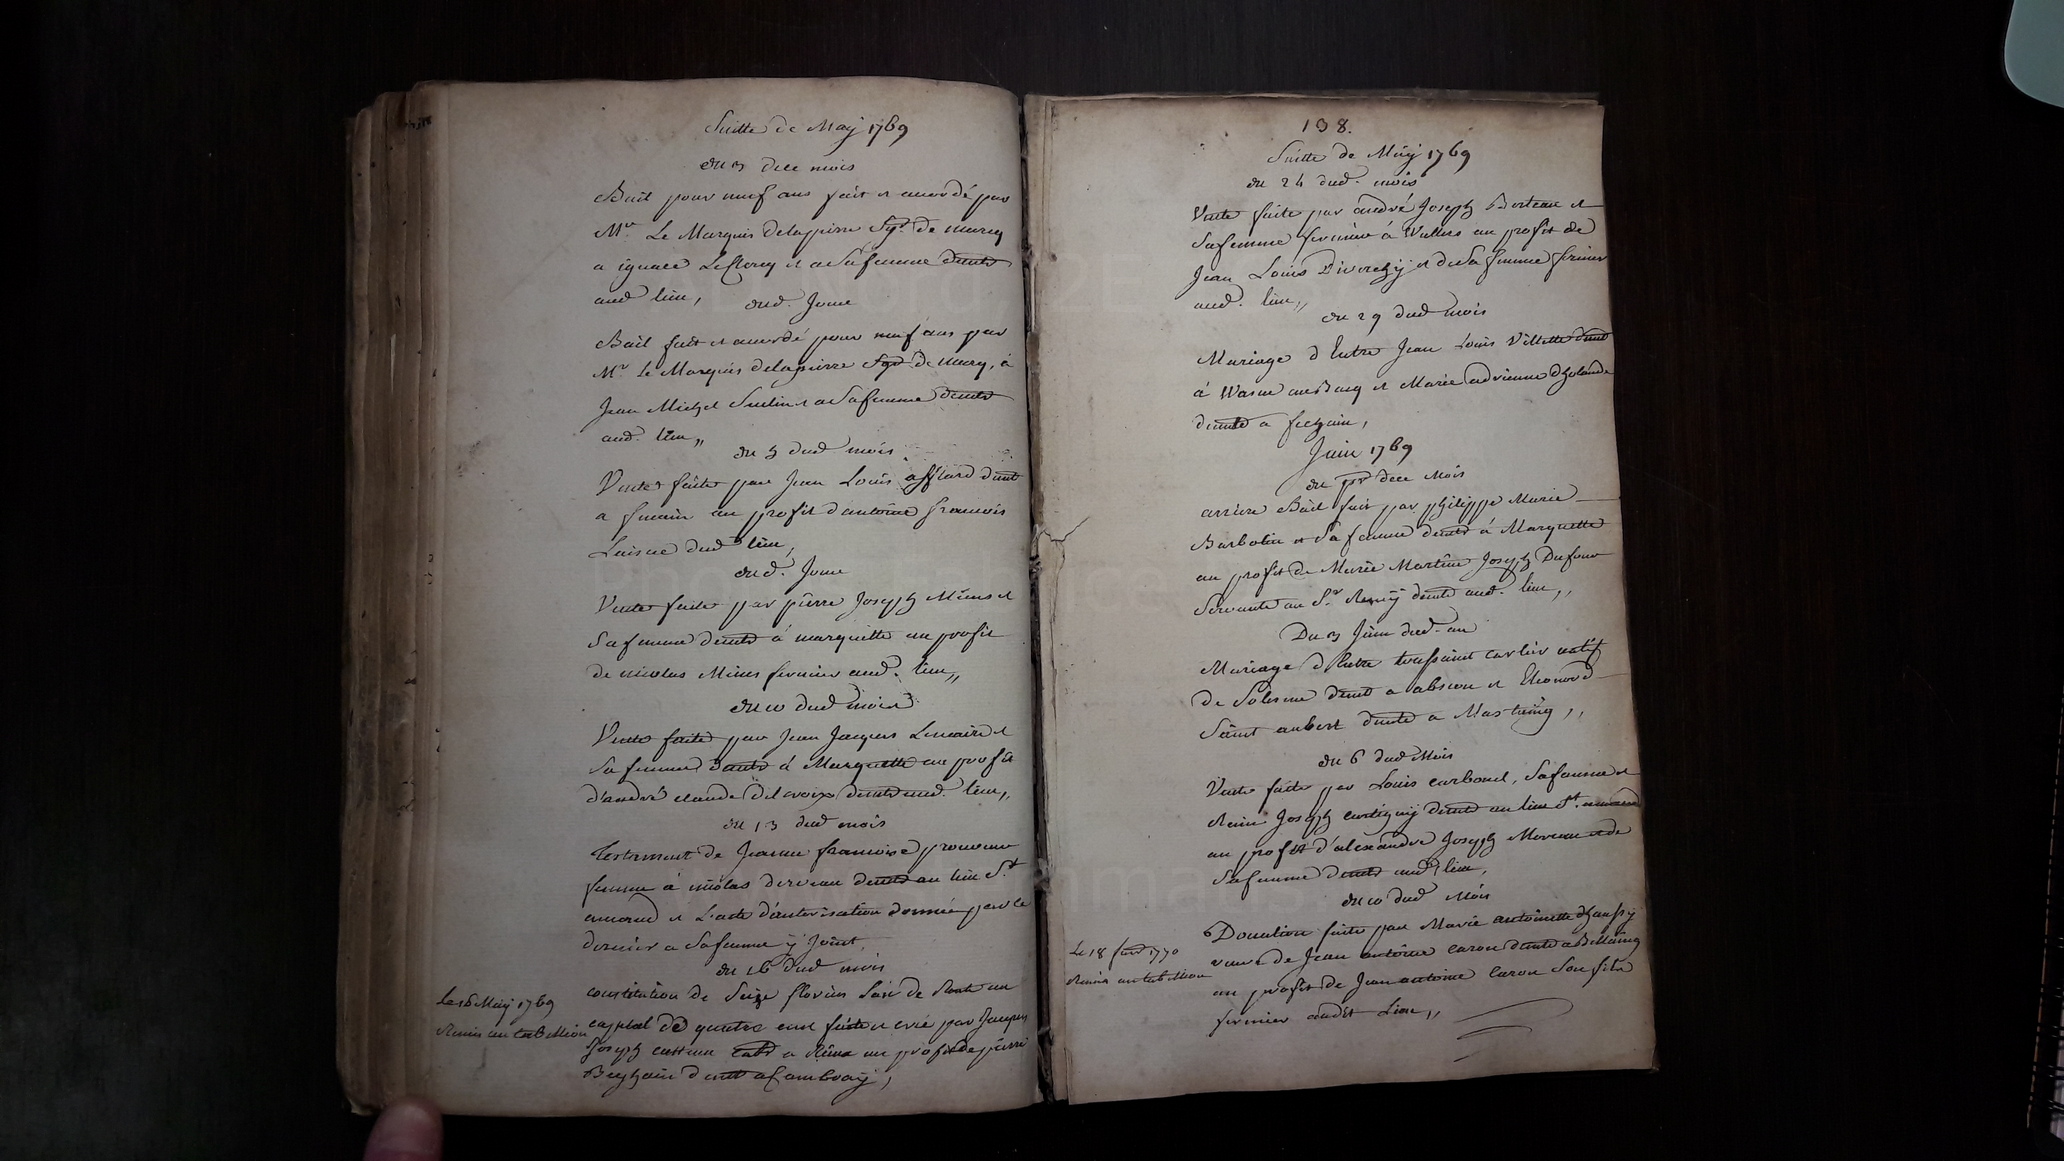 Suitte de May 1769
du 3 dece mois
Bail pour neuf ans fait et accordé par
Mr. Le Marquis delapierre Sgr. de marcq
a ignace Leflorcq et a Safemme demts
aud lieu, dud. Jour
Bail fait et accordé pour neuf ans par
Mr. le Marquis delapierre Sgr de marcq, à
Jean Michel et a Safemme demts
aud. lieu,,
du 5 dud mois.
Vente faite par Jean Louis afflard demt
a au profit d'antoine francois
Laisne dud lieu,
dud. Jour
Vente faite par pierre Joseph Miens et
Safemme demts à marquette au profit
de nicolas Miens fermier aud. lieu,,
du 10 dud mois
Vente faite par Jean Jacques Lemaire et
Safemme demts à Marquette au profit
d'andré claude Delcroix demts aud. lieu,,
du 13 dud mois
Testament de Jeanne francoise
femme à nicolas derveau demts au lieu St
amand et L'acte d'autorisation donnée par le
dernier a Safemme y Joint,
du 16 dud mois
constitution de Seize florins Soir de Rente au
le 16 May 1769
capital de quatre cent faite et créé par Jacques
Remis au tabellion
Joseph a au profit de pierre
demt a Cambray,
138.
Suitte de May 1769
du 24 dud. mois
Vente faite par andré Joseph Berteau et
Safemme fermier à Wallers au profit de
Jean Louis et de Sa femme fermier
aud. lieu,,
du 29 dud mois
Mariage d'Entre Jean Louis Villette demt
à Wasne au Bacq et Marie adrienne d'holande
demte a fechain,
Juin 1769
du pr dece Mois
arriere Bail fait par philippe Marie
Barbotin et Sa femme demts à Marquette
au profit de Marie Martine Joseph Dufour
Servante au Sr. Remy demte aud. lieu,,
Du 3 Juin dud. an
Mariage d'Entre toussaint carlier natif
de Solesme demt a abscon et Eleonord
Saint aubert demte a Mastaing,,
du 6 dud Mois
Vente faite par Louis carbonel, Safemme et
Remi Joseph demts au lieu St. amand
au profit d'alexandre Joseph Moreau et de
Safemme demts aud lieu,
du 10 dud Mois
Donation faite par Marie antoinette d'haussy
veuve de Jean antoine caron demte a
Le 18 1770
Remis au tabellion
au profit de Jean antoine caron Son fils
fermier audit Lieu,,